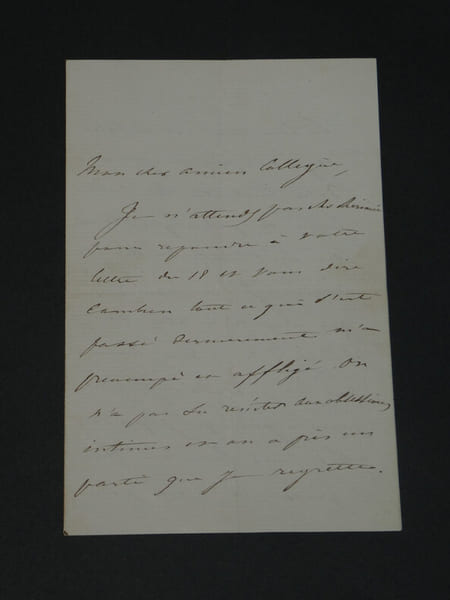 Mon cher ancien Collègue,
Je n'attends pas
pour repondre à votre
lettre du 18 et vous dire
Combien tout ce qui s'est
passé dernierement m'a
preoccupé et affligé. On
n'a pas su resister aux obsessions
intimes et on a pris un
parti que je regrette.